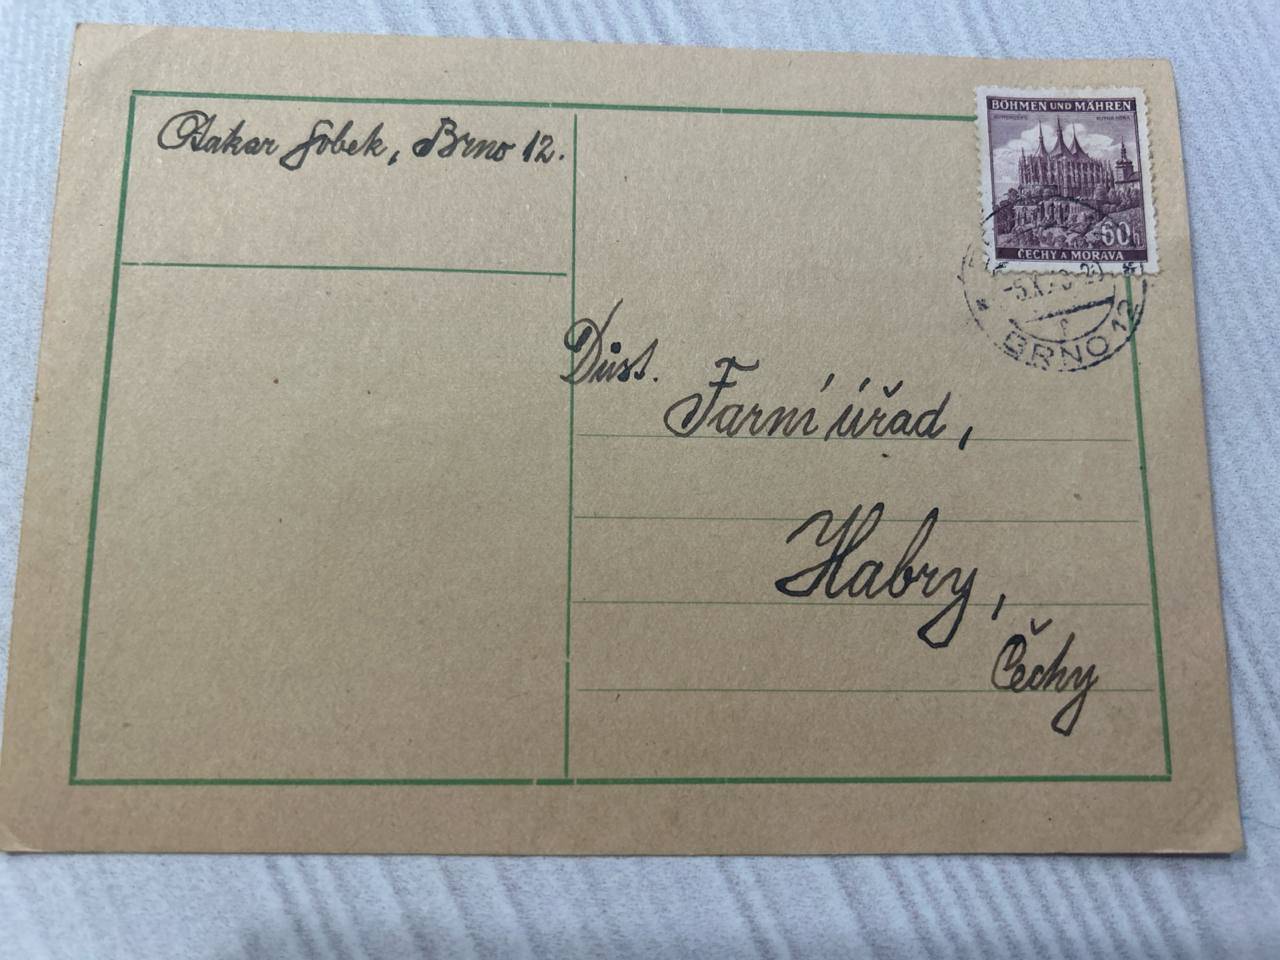 Otakar Sobek, Brno 12.
BÖHMEN UND MÄHREN
60h
ČECHY A MORAVA
BRNO 12
Důst.
Farní úřad,
Habry,
Čechy